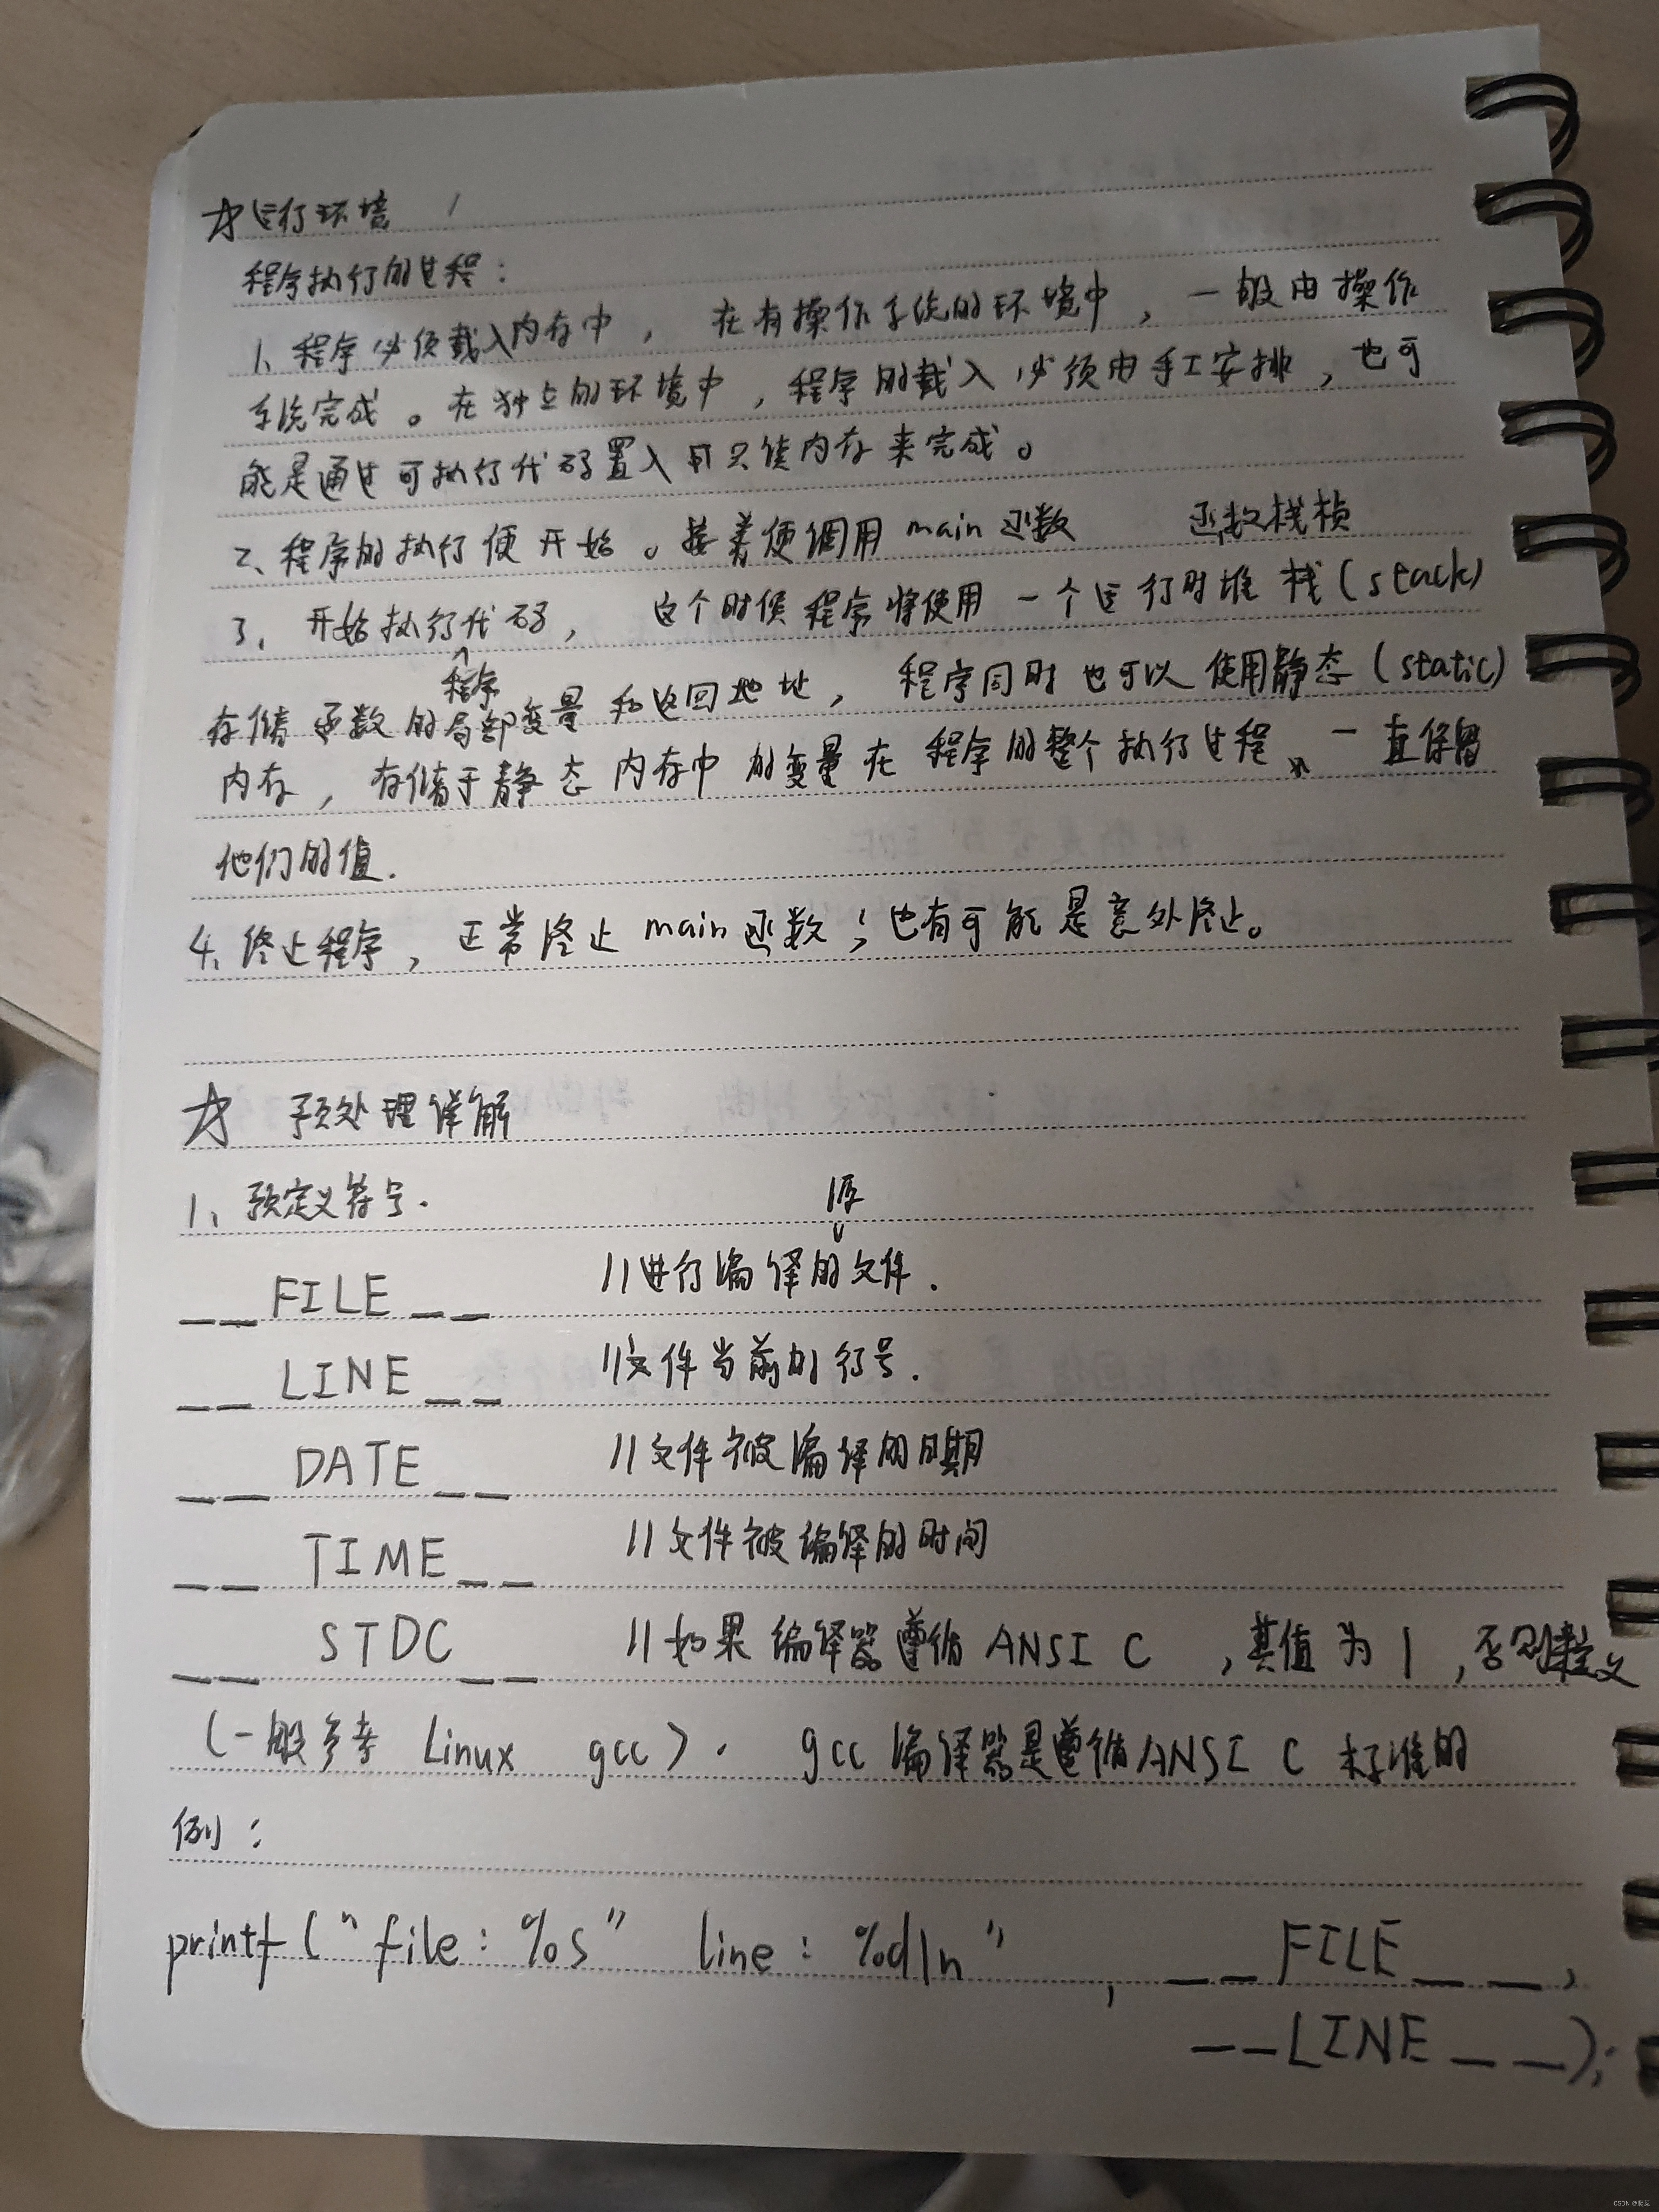 ☆运行环境
程序执行的过程:
1、程序必须载入内存中, 在有操作系统的环境中,一般由操作
系统完成。在独立的环境中,程序的载入必须由手工安排,也可
能是通过可执行代码置入只读内存来完成。
2、程序的执行便开始。接着便调用main函数 函数栈桢
3、开始执行代码, 这个时候程序将使用一个运行时堆栈(stack)
程序
存储函数的局部变量和返回地址, 程序同时也可以使用静态(static)
内存,存储于静态内存中的变量在程序的整个执行过程、一直保留
他们的值.
4、终止程序,正常终止main函数;也有可能是意外终止。
☆ 预处理详解
1、预定义符号.
源
__FILE__ //进行编译的文件.
__LINE__ //文件当前的行号.
__DATE__ //文件被编译的日期
__TIME__ //文件被编译的时间
__STDC__ //如果编译器遵循ANSI C ,其值为1,否则未定义
(一般参考 Linux gcc). gcc编译器是遵循ANSI C 标准的
例:
printf("file:%s" line:%d\n", __FILE__,
__LINE__);
CSDN @爬菜